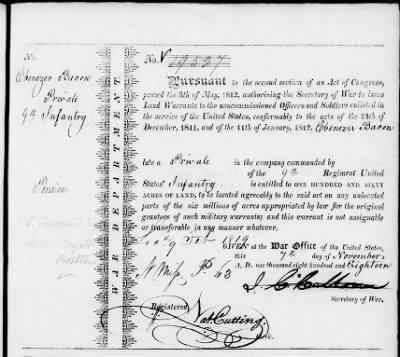 No.
Ebenezer Bacon
Private
9th Infantry
Pension
Boston
WAR DEPARTMENT.
No.
Pursuant to the second section of an Act of Congress,
passed the 6th of May, 1812, authorising the Secretary of War to issue
Land Warrants to the noncommissioned Officers and Soldiers enlisted in
the service of the United States, conformably to the acts of the 24th of
December, 1811, and of the 11th of January, 1812, Ebenezer Bacon
late a Private in the company commanded by
of the 9th Regiment United
States' Infantry is entitled to ONE HUNDRED AND SIXTY
ACRES OF LAND, to be located agreeably to the said act on any unlocated
parts of the six millions of acres appropriated by law for the original
grantees of such military warrants; and this warrant is not assignable
or transferable in any manner whatever.
1819
GIVEN at the War Office of the United States,
this 7th day of November
A. D. one thousand eight hundred and Eighteen
J. C. Calhoun
Secretary of War.
Registered
Nat. Cutting
Clerk.